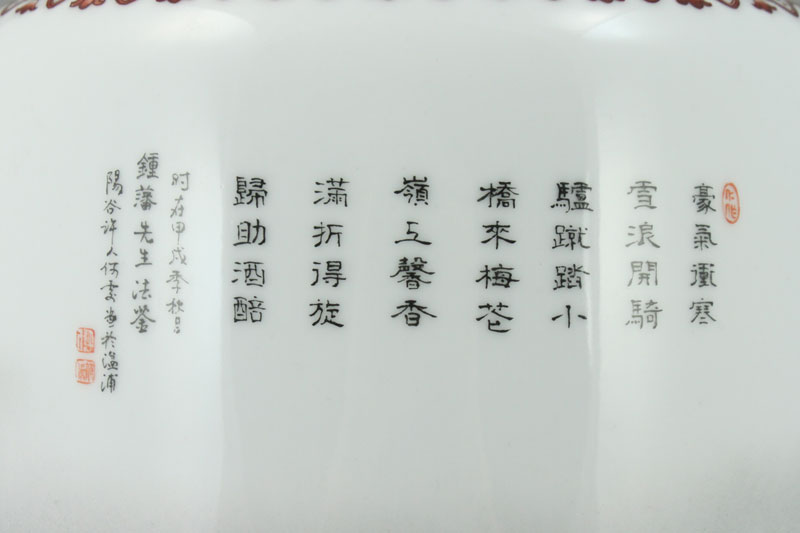 豪氣衝寒
雪浪開騎
驢蹴踏小
橋來梅花
嶺上馨香
滿折得旋
歸助酒醅
時在甲戌季秋月
鍾藩先生法鉴
陽谷許人何雲㞢於湓浦